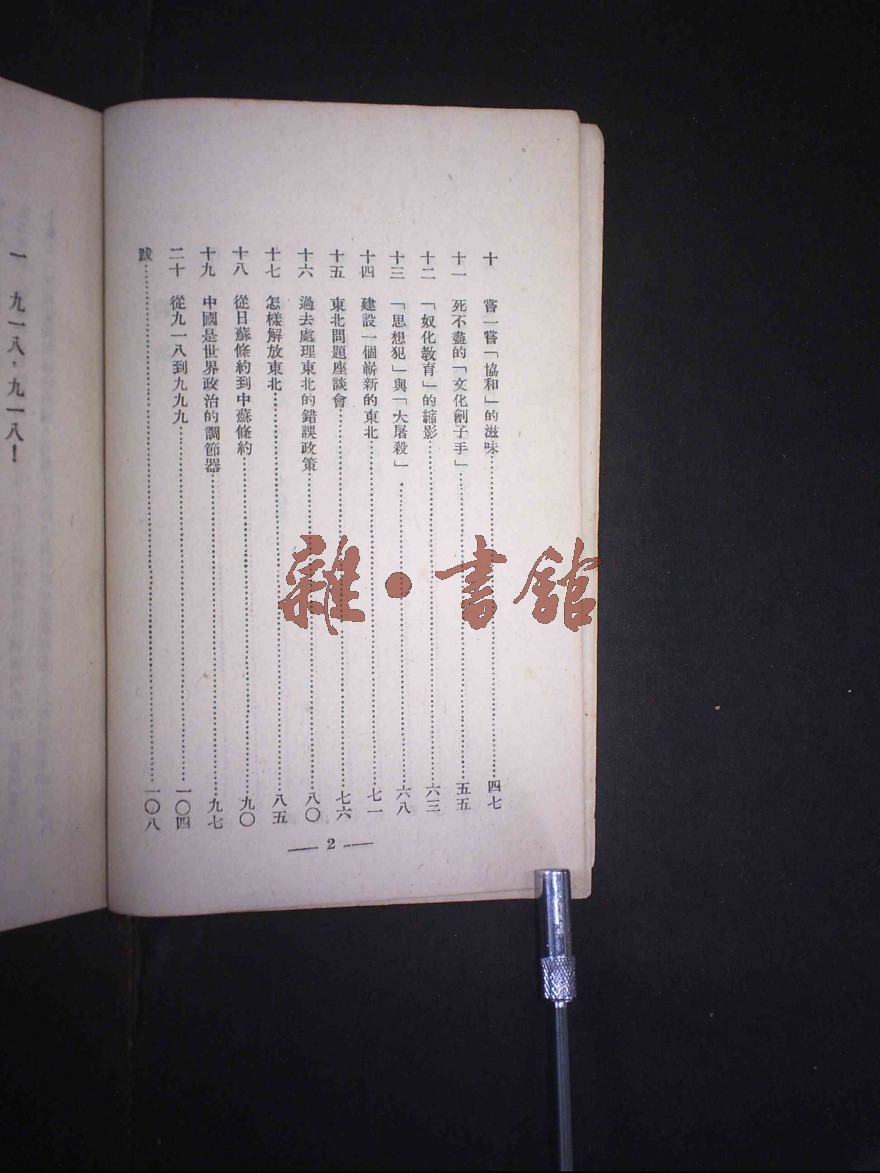 十 嘗一嘗「協和」的滋味……四七
十一 死不盡的「文化劊子手」……五五
十二 「奴化教育」的縮影……六三
十三 「思想犯」與「大屠殺」……六八
十四 建設一個嶄新的東北……七一
十五 東北問題座談會……七六
十六 過去處理東北的錯誤政策……八〇
十七 怎樣解放東北……八五
十八 從日蘇條約到中蘇條約……九〇
十九 中國是世界政治的調節器……九七
二十 從九一八到九九九……一〇四
跋……一〇八
— 2 —
一 九一八，九一八！
雜·書館